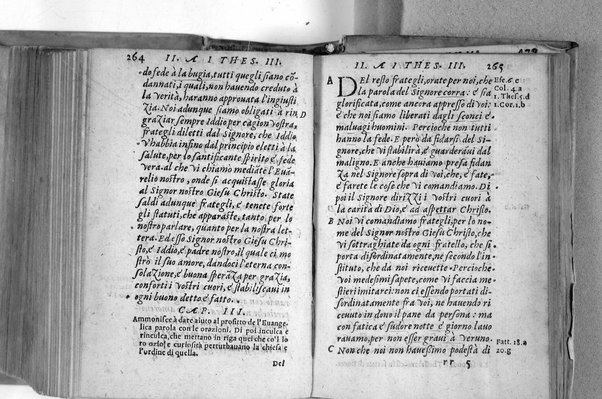 264 II. A I THES. III.
do fede à la bugia, tutti quegli siano cō-
dannati, i quali, non hauendo creduto à
la verità, haranno approuata l'ingiusti
zia. Noi adunque siamo obligati à rin D
graziar sempre Iddio per cagion vostra,
frategli diletti dal Signore, che Iddio
v'habbia infino dal principio eletti à la
salute, per lo santificante spirito, & fede
vera. al che vi chiamò mediāte l'Euā-
gelio nostro, onde si acquistasse gloria
al Signor nostro Giesu Christo. State
saldi adunque frategli, & tenete forte
gli statuti, che apparaste, tanto, per lo
nostro parlare, quanto per la nostra let
tera. Ed esso Signor nostro Giesu Chri-
sto, & Iddio, & padre nostro, il quale ci mo
strò il suo amore, dandoci l'eterna con-
solazione, & buona sperāza per grazia,
conforti i vostri cuori, & stabilisca ui in
ogni buono detto, & fatto.
CAP. III.
Ammonisce à dare aiuto al profitto de l'Euange
lica parola con le orazioni. Di poi inculca e
rinculca, che mettano in riga que' che co'l lo
ro ozio, e curiosità perturbauano la chiesa e
l'urdine di quella.
Del
II. A I THES. III. 265
A DEl resto frategli, orate per noi, che
la parola del Signore corra: & sia
glorificata, come ancora appresso di voi:
& che noi siamo liberati dagli sconci &
maluagi huomini. Percioche non tutti
hanno la fede. E però da fidarsi del Si-
gnore, che vi stabilirà, & guarderàui dal
maligno. E anche habiamo presa fidan
za nel Signore sopra di voi, che, & fate,
& farete le cose che vi comandiamo. Di
poi il Signore dirizzi i vostri cuori à
la carità di Dio, & ad aspettar Christo.
B Noi vi comandamo frategli, per lo no
me del Signor nostro Giesu Christo, che
vi sottraghiate da ogni fratello, che si
porta disordinatamente, ne secondo l'in
stituto, che da noi riceuette. Percioche
voi medesimi sapete, come vi faccia me
stieri imitarci: non ci essendo portati di-
sordinatamente fra voi, ne hauendo ri
ceuuto in dono il pane da persona: ma
con fatica & sudore notte & giorno lauo
rauamo, per non esser graui à veruno.
C Non che noi non hauessimo podestà di
rr 5
Efe. 6. c
Col. 4. a
1. Thes. 5. d
1. Cor. 1. b
Fatt. 18. a
20. g